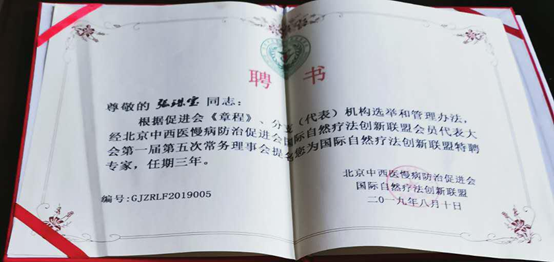 聘书
尊敬的 张琪宝 同志：
根据促进会《章程》、分支（代表）机构选举和管理办法，
经北京中西医慢病防治促进会国际自然疗法创新联盟会员代表大
会第一届第五次常务理事会提名您为国际自然疗法创新联盟特聘
专家，任期三年。
北京中西医慢病防治促进会
国际自然疗法创新联盟
二〇一九年八月十日
编号:GJZRLF2019005